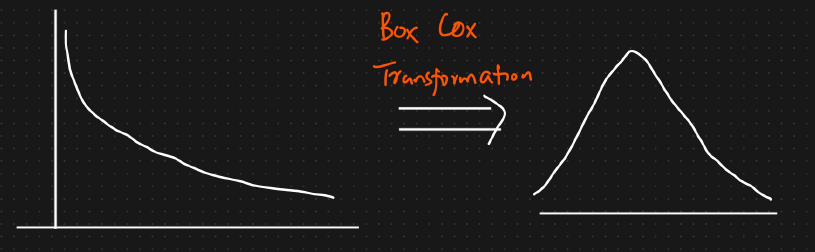 Box Cox
Transformation